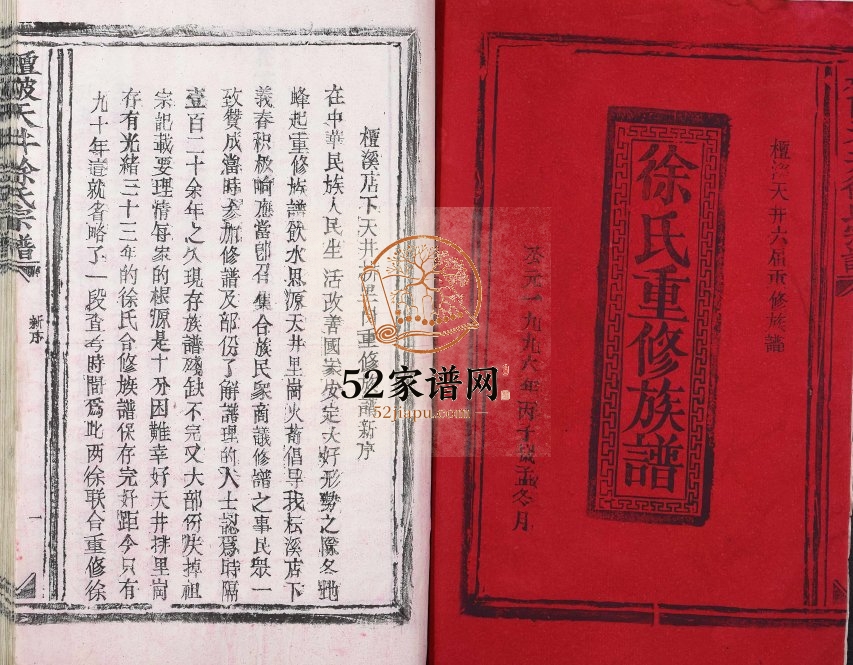 檀溪天井六届重修族譜
徐氏重修族譜
公元一九九六年丙子歲孟冬月
檀溪店下天井排里崗重修 譜新序
在中華民族人民生活改善國家安定大好形勢之際各地
峰起重修族譜飲水思源天井里崗火荀倡导我耘溪店下
義春积极响应當即召集合族民衆商議修譜之事民衆一
致赞成當時参加修譜及部份了解譜理的人士認爲時隔
壹百二十余年之久現存族譜殘缺不完又大部份失掉祖
宗記載要理情每家的根源是十分困難幸好天井排里崗
存有光緒三十三年的徐氏合修族譜保存完好距今只有
九十年這就省略了一段查考時間爲此两徐联合重修徐
天井徐氏宗譜
新序
一
52家谱网
52jiapu.com